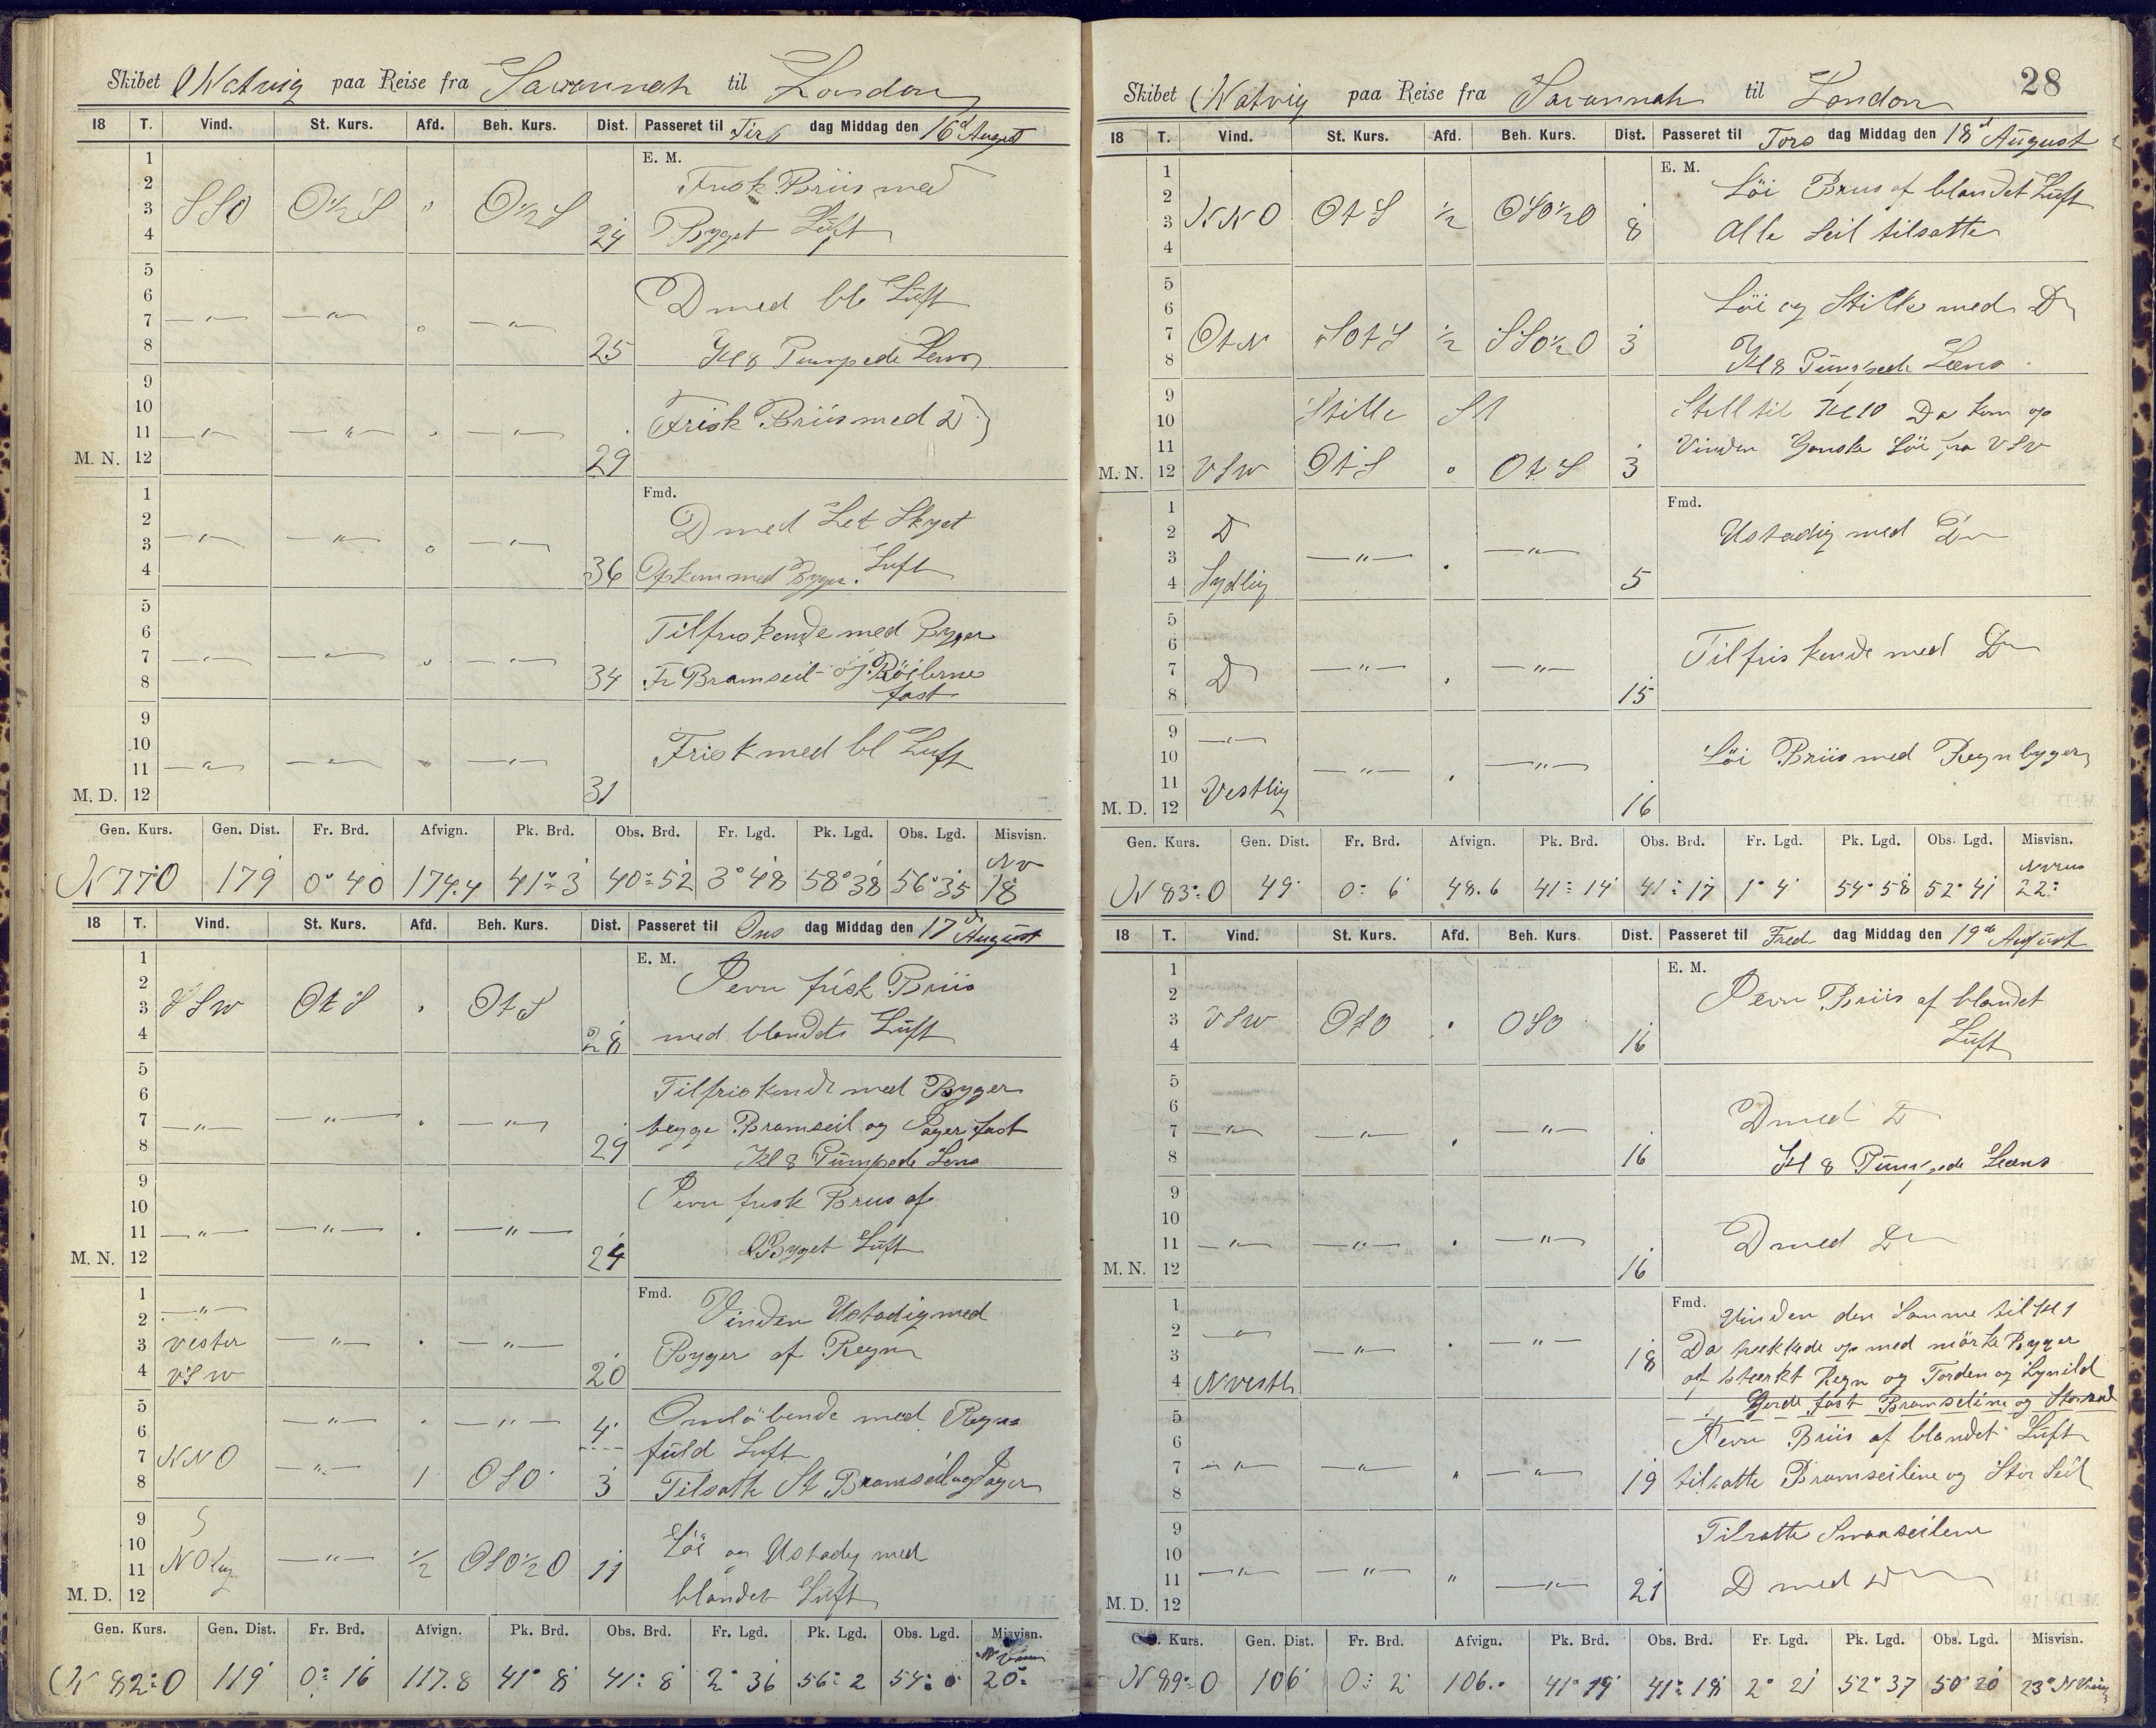 Skibet Natvig paa Reise fra Savannah til London
18 T. Vind. St. Kurs. Afd. Beh. Kurs. Dist. Passeret til Tirs dag Middag den 16d August
E. M.
1
2 Frisk Briis med
3 SSO O½S " O½S
4 24 Byget Luft
5
6 D med bl Luft
7 —"— —"— " —"—
8 25 Kl 8 Pumpede Lens
9
10 Frisk Briis med D
11 —"— —"— " —"—
M. N. 12 29
Fmd.
1
2 D med Let Skyet
3 —"— —"— " —"— Luft
4 36 Opkom med Byger.
5
6 Tilfriskende med Byger
7 —"— —"— " —"—
8 34 Fr Bramseil og Röilerne
fast
9
10 Frisk med bl Luft
11 —"— —"— " —"—
M. D. 12 31
Gen. Kurs. Gen. Dist. Fr. Brd. Afvign. Pk. Brd. Obs. Brd. Fr. Lgd. Pk. Lgd. Obs. Lgd. Misvisn.
N 77 O 179 0° 40 174.4 41° 3 40° 52 3° 48 58° 38 56° 35 NV 18
18 T. Vind. St. Kurs. Afd. Beh. Kurs. Dist. Passeret til Ons dag Middag den 17d August
E. M.
1
2 Jevn frisk Briis
3 VSW OtS " OtS
4 28 med blandet Luft
5
6 Tilfriskende med Byger
7 —"— —"— " —"— begge Bramseil og Jager fast
8 29 Kl 8 Pumpede Lens
9
10 Jevn frisk Briis af
11 —"— —"— " —"—
M. N. 12 24 Byget Luft
Fmd.
1
2 —"— Vinden Ustadig med
3 Vester —"— " —"—
4 VSW 20 Byger af Regn
5 —"— " —"— 4 Omløbende med Regn
6 fuld Luft
7 NNO —"—
8 1 OSO 3 Tilsatte St Bramseil og Jager
9
10 Löi og Ustadig med
11 NOlig —"— ½ OSO½O 11
M. D. 12 blandet Luft
Gen. Kurs. Gen. Dist. Fr. Brd. Afvign. Pk. Brd. Obs. Brd. Fr. Lgd. Pk. Lgd. Obs. Lgd. Misvisn.
N 82° O 119 0° 16 117.8 41° 8 41° 8 2° 36 56° 2 54° 0 20°
28
Skibet Natvig paa Reise fra Savannah til London
18 T. Vind. St. Kurs. Afd. Beh. Kurs. Dist. Passeret til Tors dag Middag den 18d August
E. M.
1
2 Löi Briis af blandet Luft
3 NNO OtS ½ OSO½O 8 Alle Seil tilsatte
4
5
6 Löi og Stille med D
7 OtN SOtS ½ SSO½O 3
8 Kl 8 Pumpede Læns
9 Stille St Still til Kl 10 Da kom op
10
11 Vinden Ganske Löi fra VSV
M. N. 12 VSW OtS " OtS 3
Fmd.
1
2 D Ustadig med D
3 —"— " —"—
4 Sydlig 5
5
6 Tilfriskende med D
7 D —"— " —"—
8 15
9 —"—
10 Löi Briis med Regnbyger
11 Vestlig —"— " —"—
M. D. 12 16
Gen. Kurs. Gen. Dist. Fr. Brd. Afvign. Pk. Brd. Obs. Brd. Fr. Lgd. Pk. Lgd. Obs. Lgd. Misvisn.
N 83° O 49 0° 6 48.6 41° 14 41° 17 1° 4 54° 58 52° 41 22°
18 T. Vind. St. Kurs. Afd. Beh. Kurs. Dist. Passeret til Fre dag Middag den 19de August
E. M.
1
2 Jevn Briis af blandet
3 VSW OSO " OSO
4 16 Luft
5
6 D med D
7 —"— —"— " —"—
8 16 Kl 8 Pumpede Læns
9
10
11 —"— —"— " —"— D med D
M. N. 12 16
Fmd.
1 Vinden den Samme til Kl 1
2 —"— Da trekkede op med mörke Byger
3 —"— " —"— 18 af stærkt Regn og Torden og Lynild
4 NVestl Gjorde fast Bramseilene og Storseil
5
6 Jevn Briis af blandet Luft
7 —"— —"— " —"— 19 tilsatte Bramseilene og Stor Seil
8
9 Tilsatte Smaaseilene
10
11 —"— —"— " —"— 21 D med D
M. D. 12
Gen. Kurs. Gen. Dist. Fr. Brd. Afvign. Pk. Brd. Obs. Brd. Fr. Lgd. Pk. Lgd. Obs. Lgd. Misvisn.
N 89° O 106 0° 2 106.. 41° 19 41° 18 2° 21 52° 37 50° 20 23°